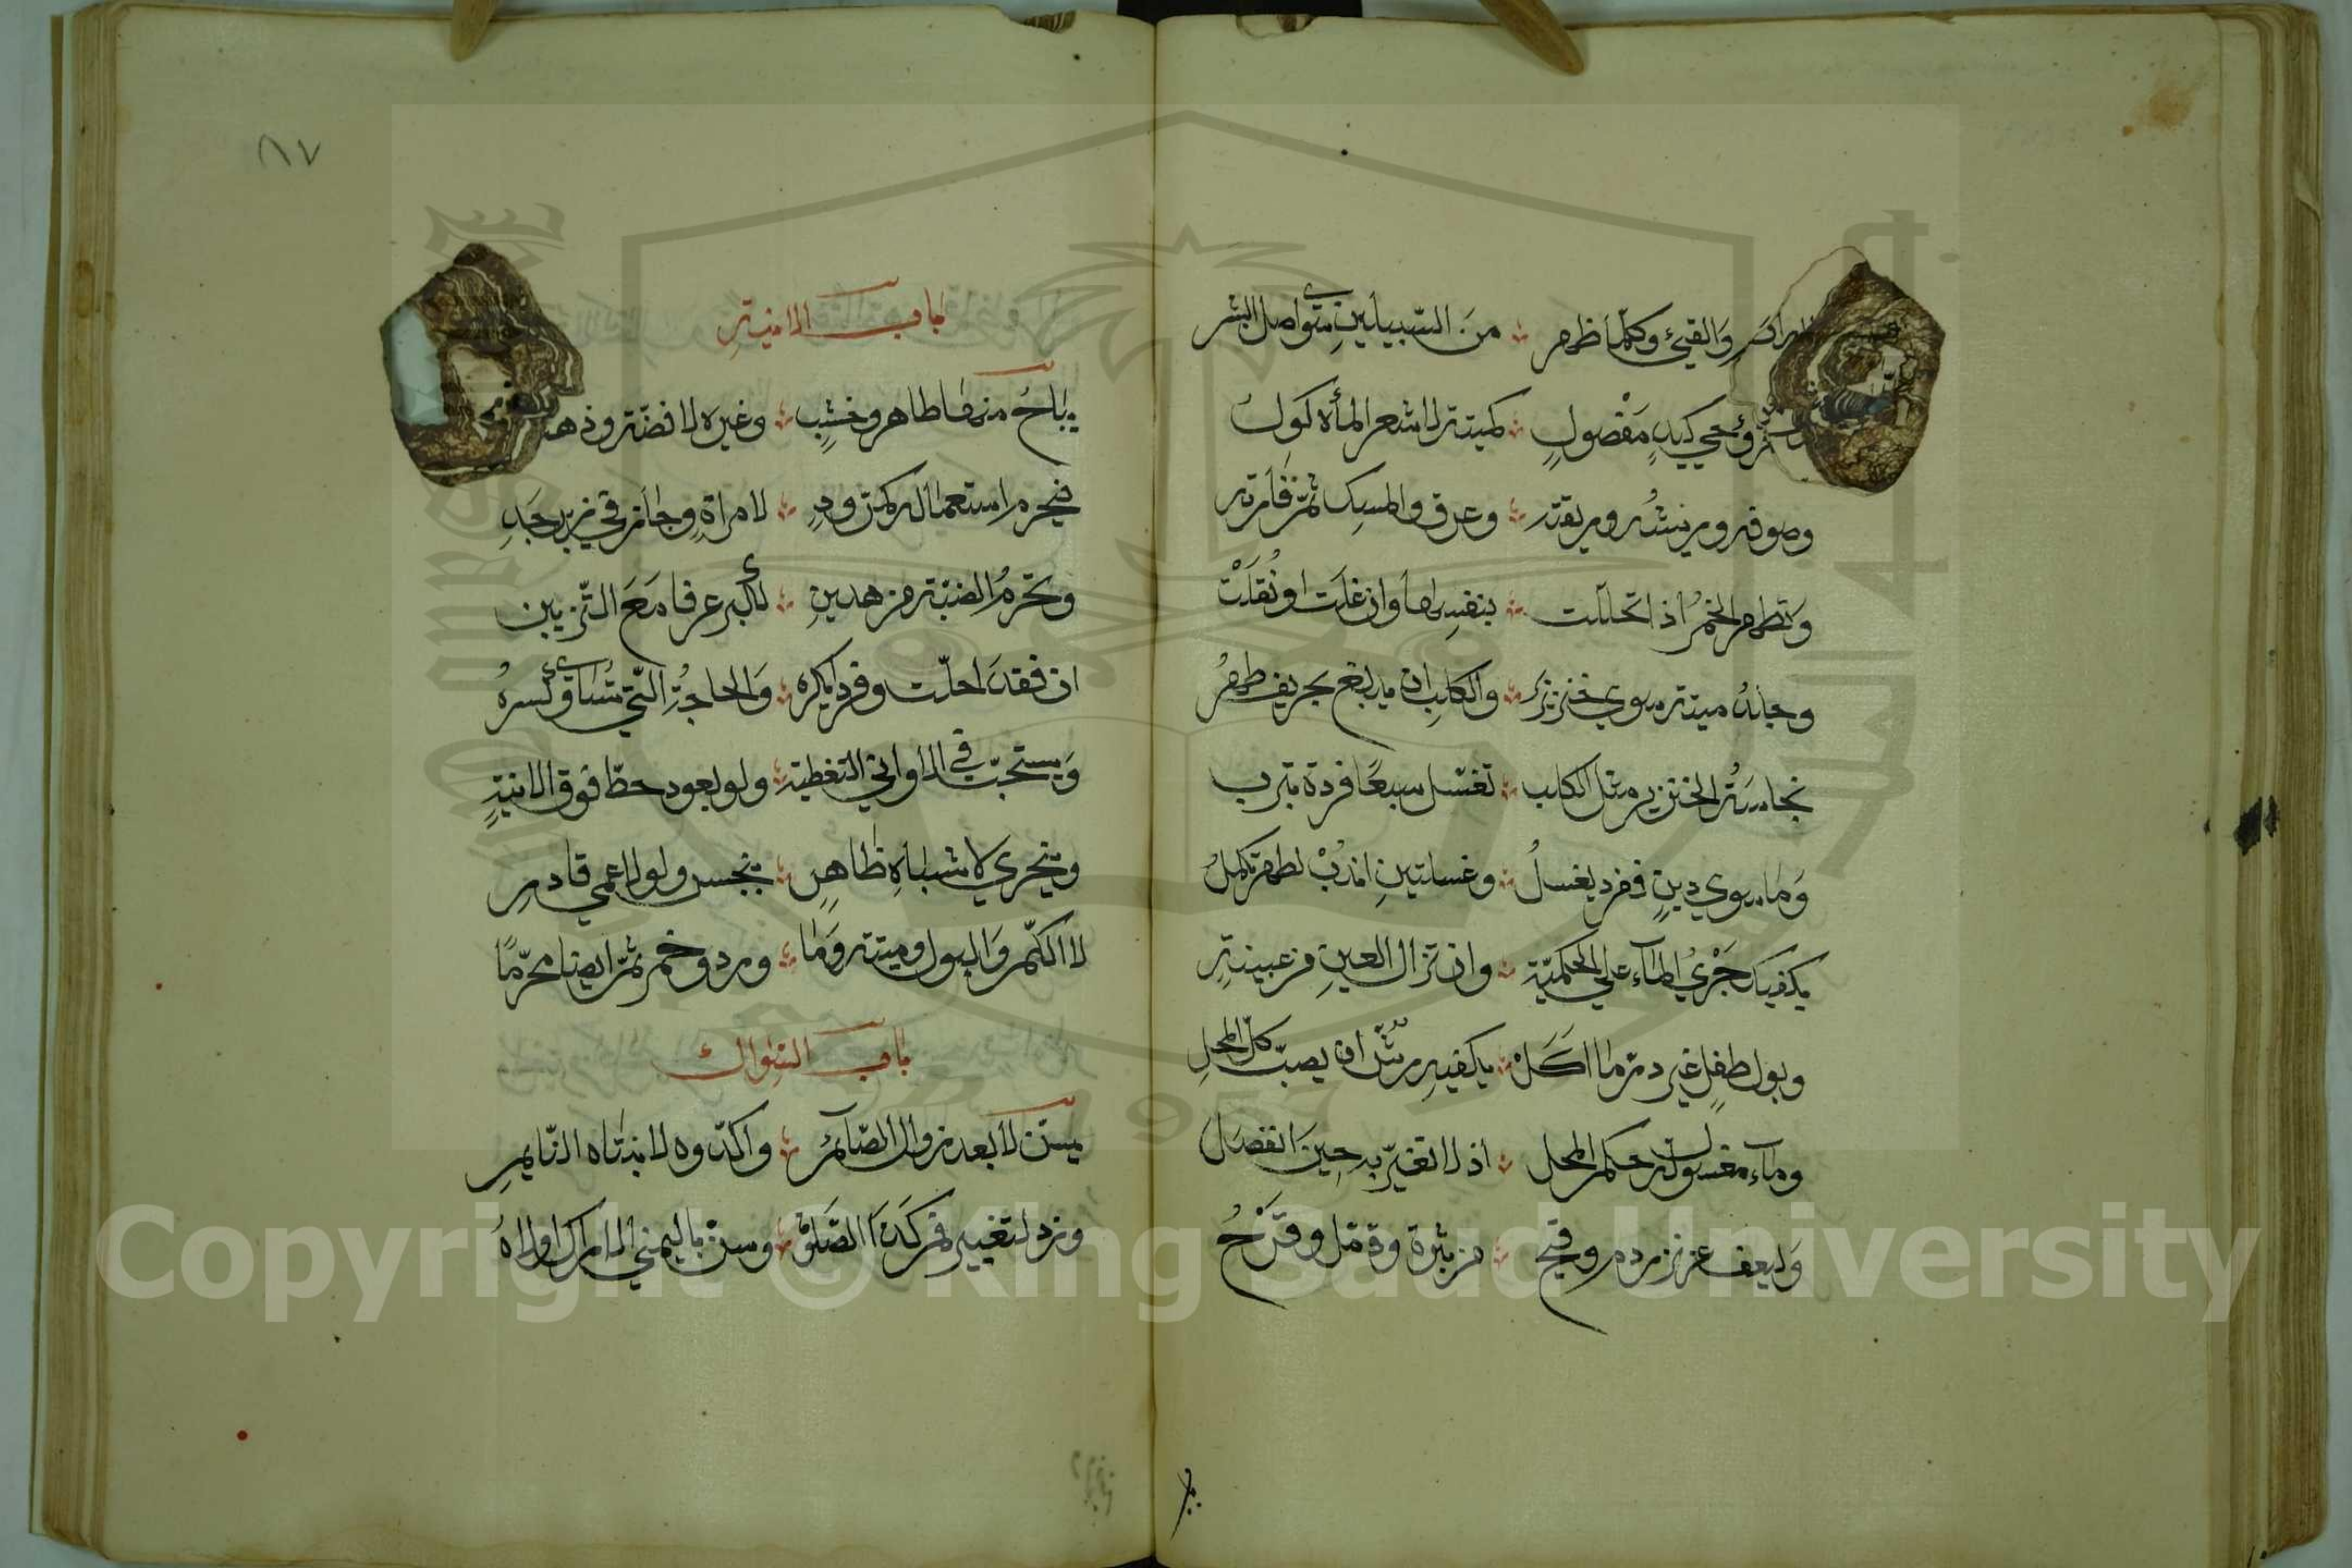 والقيئ وكلما ظهر ؞ من السبيلين سوى اصل البشر
وجزء حي كيد مفصول ؞ كميتة لا شعر المأكول
وصوفه وريشه وريقته ؞ وعرق والمسك ثم فارته
وتطهر الخمر اذا تخللت ؞ بنفسها وان غلت او نقلت
وجلد ميتة سوى خنزيز ؞ والكلب ان يدبغ بحريف طهر
نجاسة الخنزير مثل الكلب ؞ تغسل سبعا فردة بترب
وما سوى دين ففرد يغسل ؞ وغسلتين اندب لطهر تكمل
يكفيك جري الماء على الحكمية ؞ وان تزال العين من عينية
وبول طفل غير در ما اكل ؞ يكفيه رش ان يصب كل المحل
وماء مغسول له حكم المحل ؞ اذ لا تغير به حين انفصل
وليعف عن نزر دم وقيح ؞ من بثرة ودمل وقرح
٨٧
باب الانية
يباح منها طاهر وخشب ؞ وغيره لا فضة وذهب
فيحرم استعماله كمرود ؞ لامراة وجاز في زبرجد
وتحرم الضبة من هذين ؞ لكبر عرفا مع التزيين
ان فقدا حلت وفردا يكره ؞ والحاجة التي تساوي كسره
ويستحب في الاواني التغطية ؞ ولو بعود حط فوق الانية
ويتحرى لاشتباه طاهر ؞ بنجس ولو لاعمى قادر
لا الكم والبول وميتة وما ؞ ورد وخمر ثم ايضا محرما
باب السواك
يسن لا بعد زوال الصائم ؞ واكدوه لانتباه النايم
ونرد لتغيير فم كذا الصلاة ؞ وسن باليمنى الاراك اولاه
Copyright © King Saud University
1957